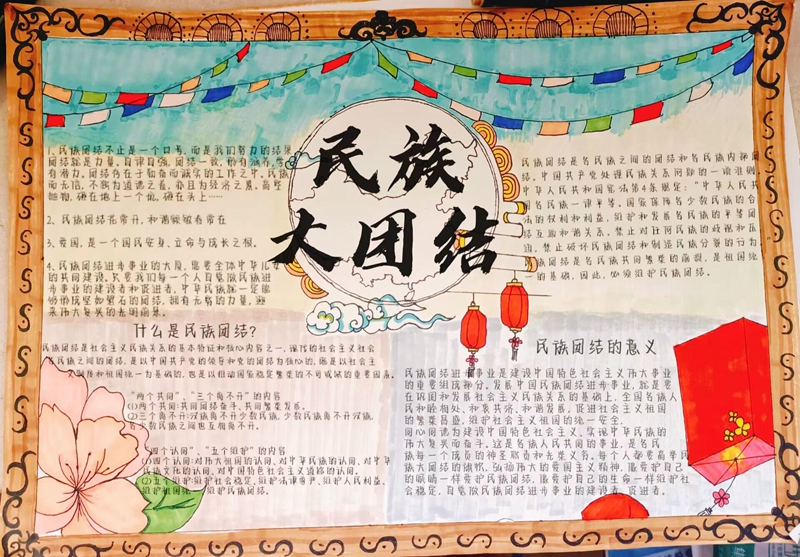 民族
大团结
1、民族团结不止是一个口号，而是我们努力的结果
团结就是力量，自律自强，团结一致，
有潜力。团结存在于勤奋而踏实的工作之中，民族
2、民族团结花常开，和谐
3、爱国，是一个国民安身、立命与成长之根。
4、民族团结进步事业的大厦，需要全体中华儿女
的共同建设。只要我们每一个人自觉做民族进
步事业的建设者和促进者，中华民族就一定能
够形成坚如磐石的团结，拥有无穷的力量，迎
来伟大复兴的光明前景。
民族团结是各民族之间的团结和各民族内部团
结。中国共产党处理民族关系问题的一项准则
中华人民共和国宪法第4条规定：“中华人民共
各民族一律平等。国家保障各少数民族的合
法的权利和利益，维护和发展各民族的平等团
结互助和谐关系。禁止对任何民族的歧视和压
迫，禁止破坏民族团结和制造民族分裂的行为
民族团结是各民族共同繁荣的前提，是祖国统
一的基础，因此，必须维护民族团结。
什么是民族团结？
民族团结是社会主义民族关系的基本特征和核心内容之一，我们的社会主义社会
各民族之间的团结，是以中国共产党的领导和党的团结为核心的，既是以社会主
义制度和祖国统一为基础的，也是以推动国家稳定繁荣的不可或缺的重要因素。
“两个共同”、“三个离不开”的内容
(1)两个共同:共同团结奋斗，共同繁荣发展。
(2)三个离不开:汉族离不开少数民族，少数民族离不开汉族，
各少数民族之间也互相离不开。
“四个认同”、“五个维护”的内容
(1)四个认同:对伟大祖国的认同、对中华民族的认同、对中华
民族文化的认同、对中国特色社会主义道路的认同。
(2)五个维护:维护社会稳定、维护法律尊严、维护人民利益、
维护祖国统一、维护民族团结。
民族团结的意义
民族团结进步事业是建设中国特色社会主义伟大事业
的重要组成部分。发展中国民族团结进步事业，就是要
在巩固和发展社会主义民族关系的基础上，全国各族人
民和睦相处、和衷共济、和谐发展，促进社会主义祖国
的繁荣昌盛，维护社会主义祖国的统一安全，
同心同德为建设中国特色社会主义、实现中华民族的
伟大复兴而奋斗。这是各族人民共同的事业，是各民
族每一个成员的神圣职责和光荣义务。每个人都要高举民
族大团结的旗帜，弘扬伟大的爱国主义精神，像爱护自己
的眼睛一样爱护民族团结，像爱护自己的生命一样维护社
会稳定，自觉做民族团结进步事业的建设者、促进者。